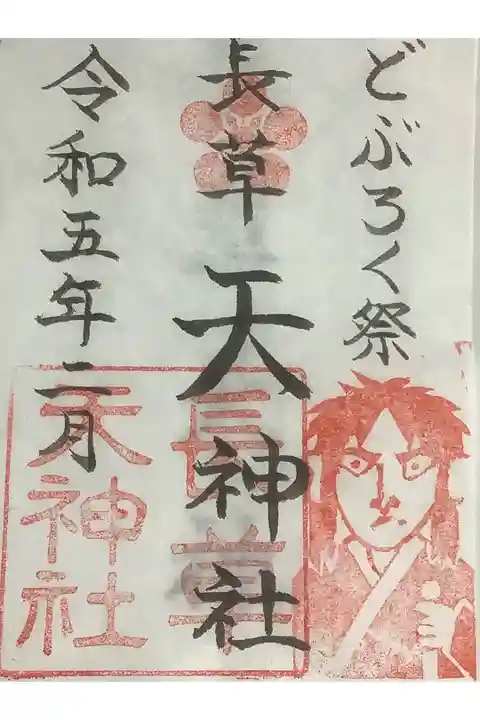 どぶろく祭
長草天神社
令和五年二月
長草
天神社